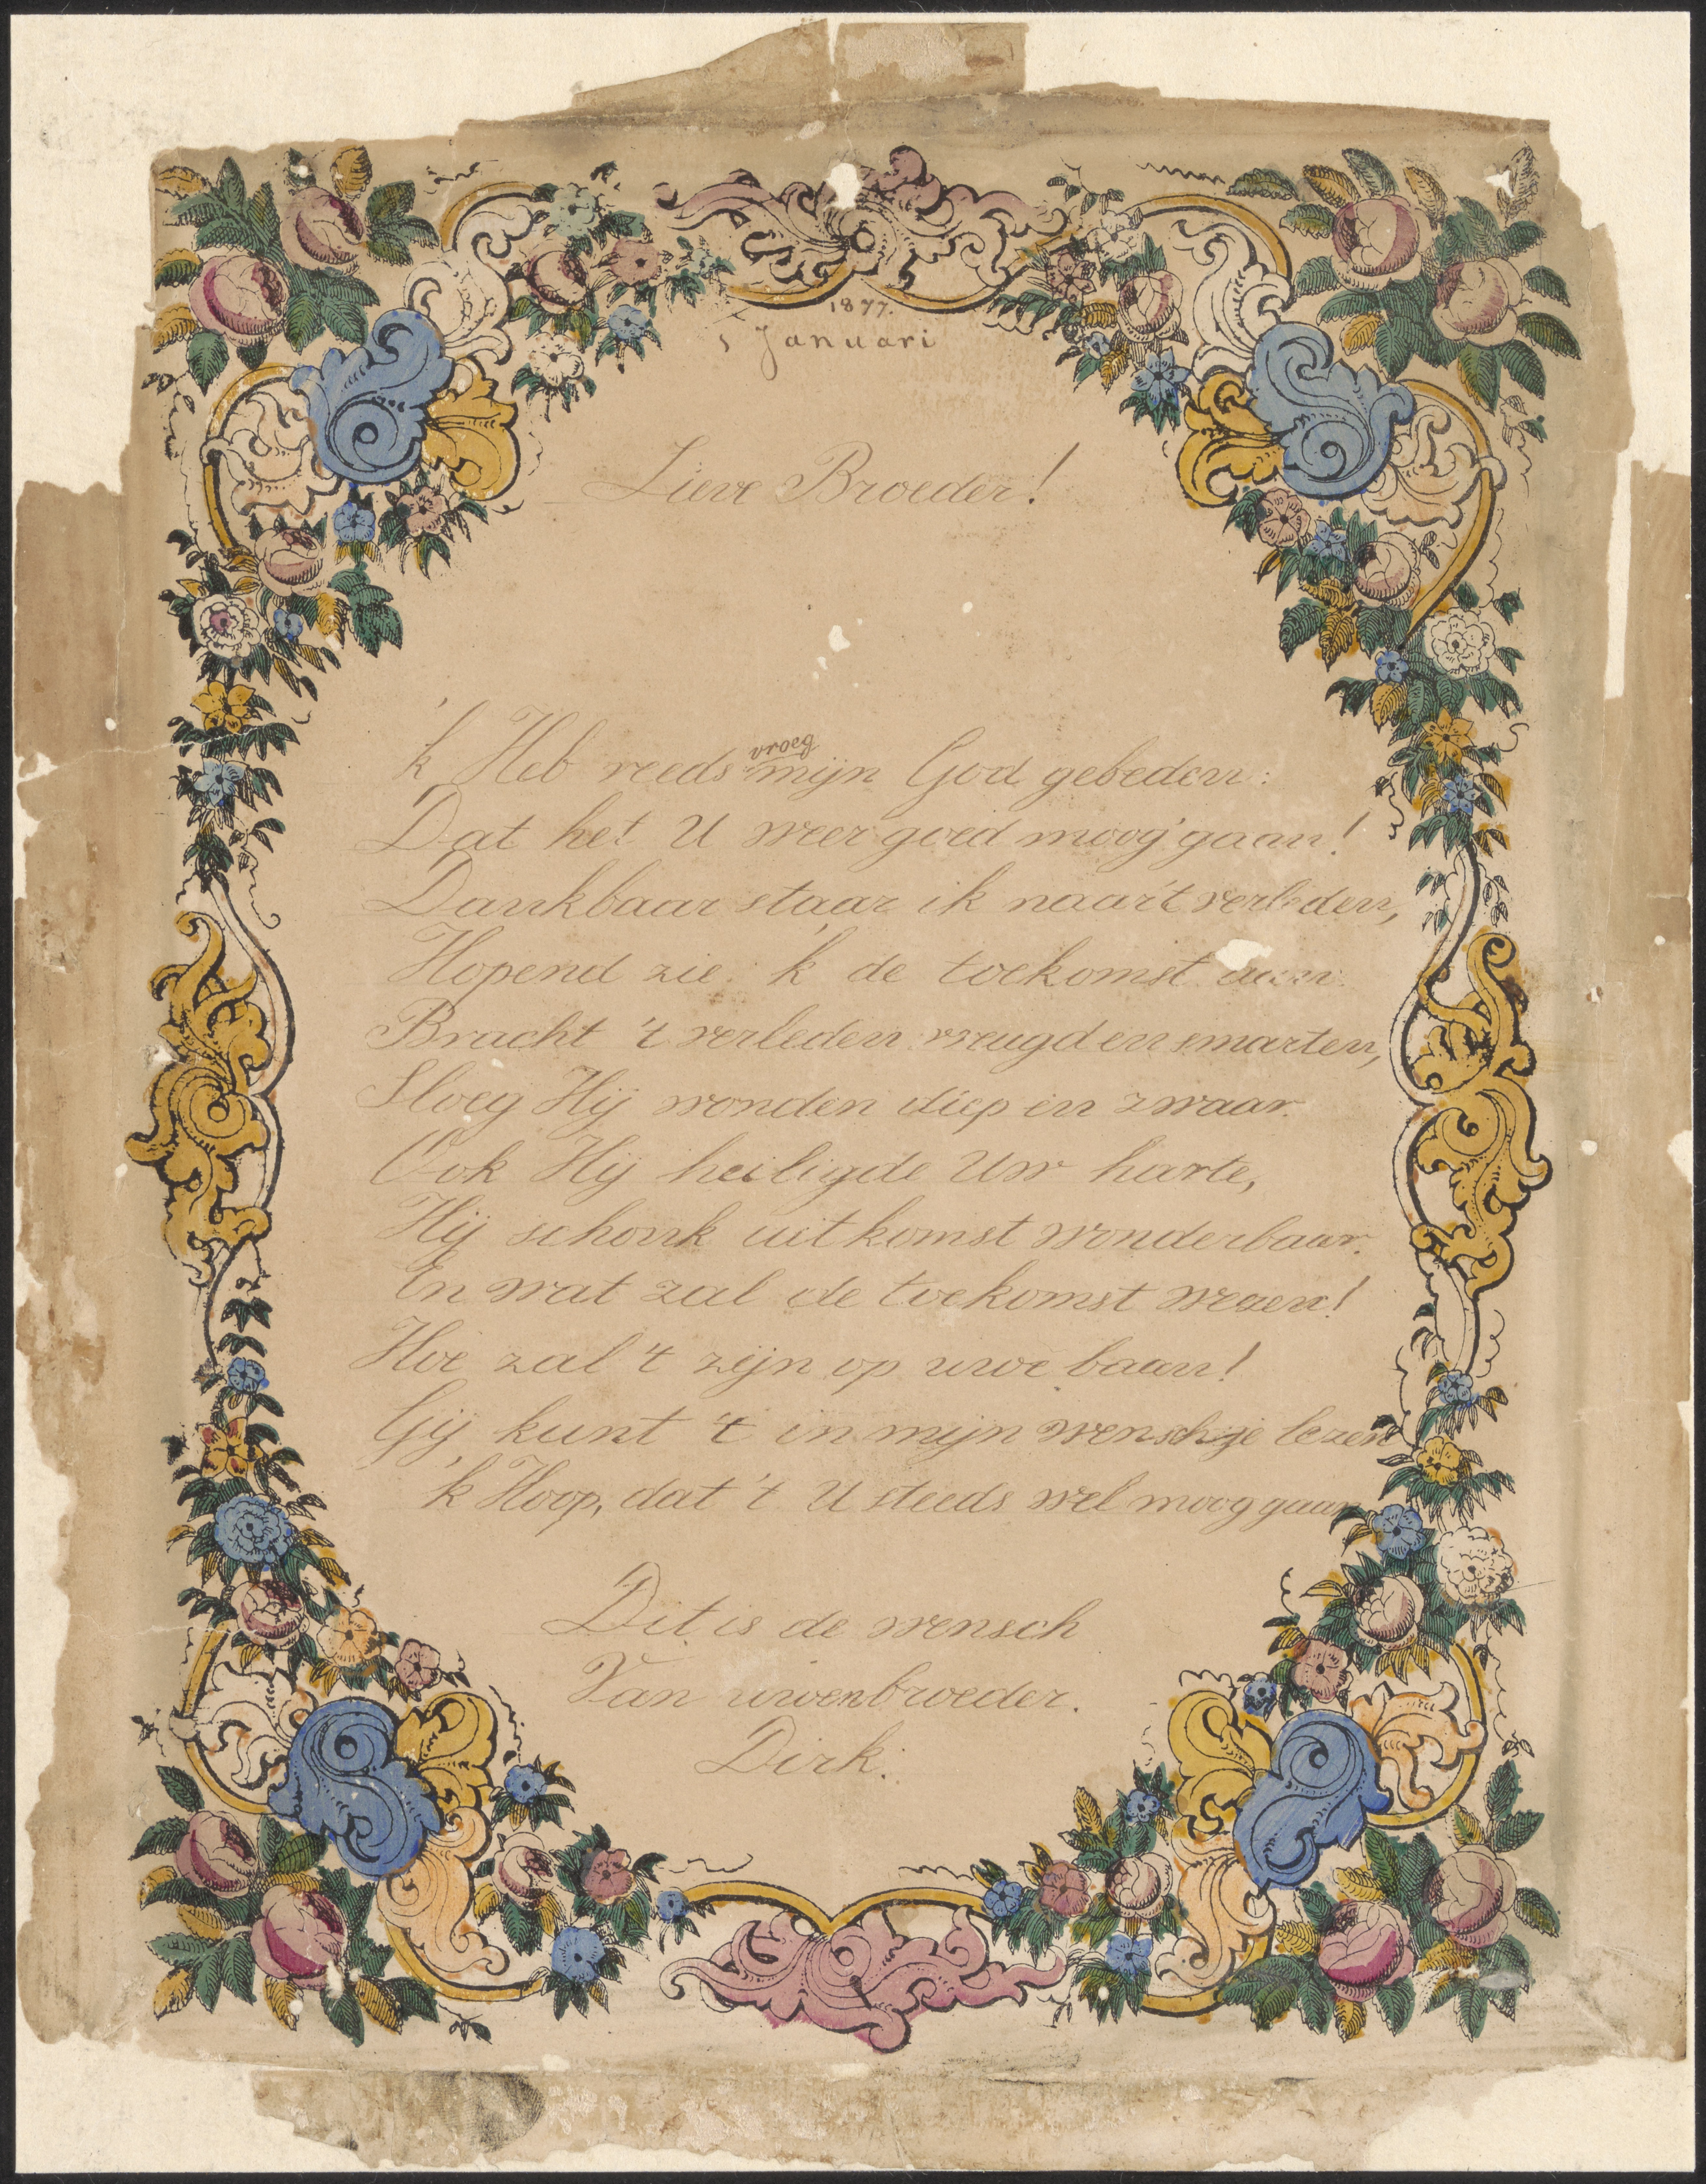 1877.
1 Januari
Lieve Broeder!
'k Heb reeds vroeg mijn God gebeden:
Dat het U weer goed moog' gaan!
Dankbaar staar ik naar 't verleden,
Hopend zie 'k de toekomst aan.
Bracht 't verleden vreugd en smarten,
Sloeg Hij wonden diep en zwaar.
Ook Hij heiligde Uw harte,
Hij schonk uitkomst wonderbaar.
En wat zal de toekomst wezen!
Hoe zal 't zijn op uwe baan!
Gij kunt 't in mijn wenschje lezen
'k Hoop, dat 't U steeds wel moog gaan
Dit is de wensch
Van uwen broeder.
Dirk.